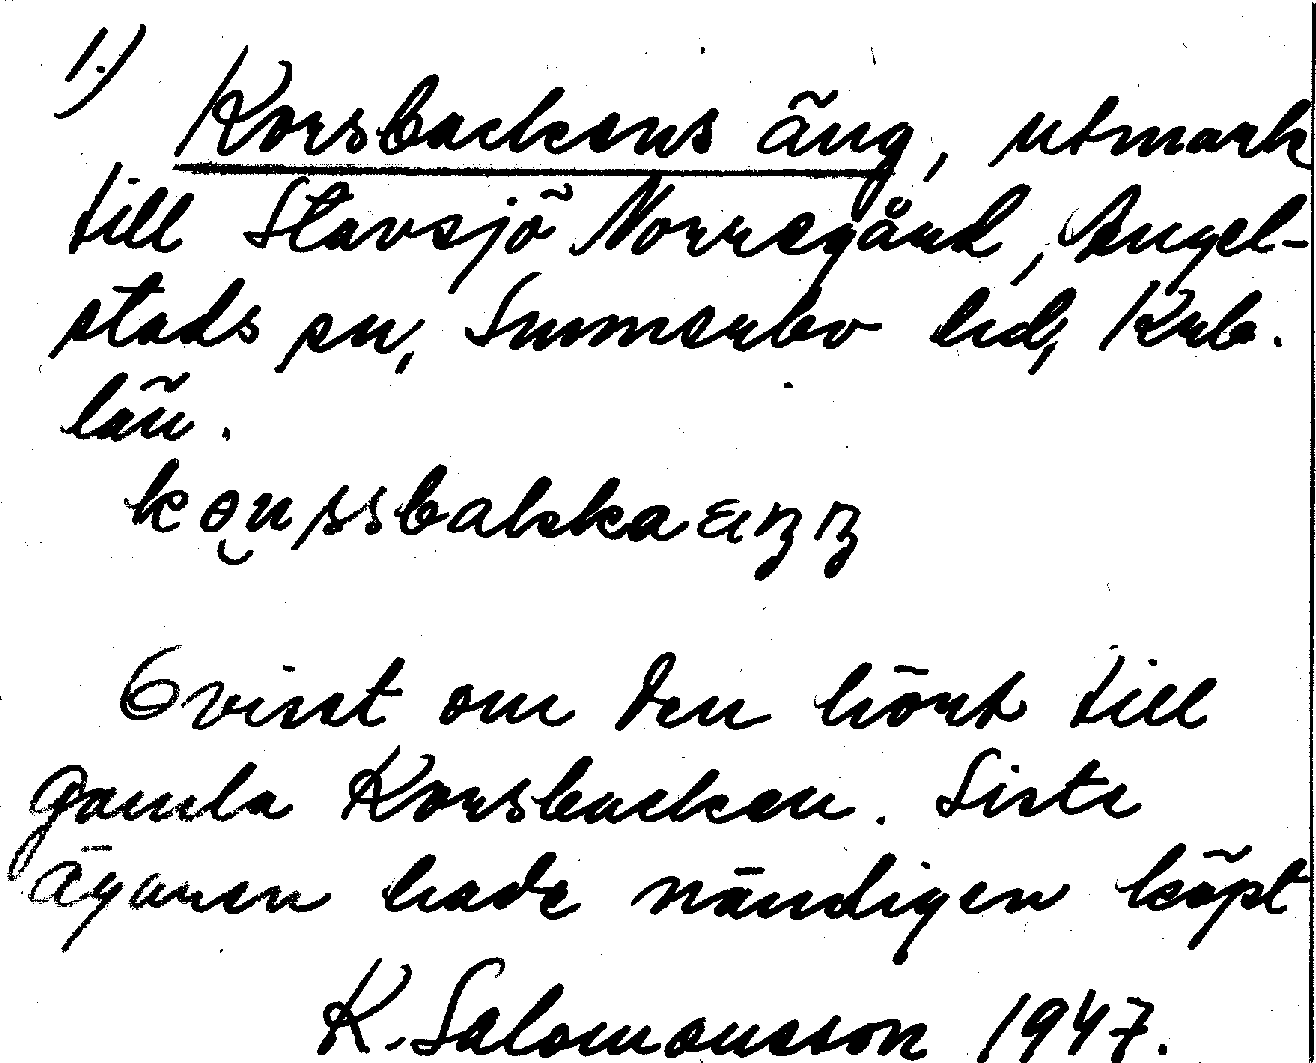 1.)
Korsbackens äng, utmark
till Stavsjö Norregård, Angel-
stads sn, Sunnerbo hd, Krb.
län.
Ovisst om den hört till
gamla Korsbacken. Siste
ägaren hade nämligen köpt
K. Salomonsson 1947.